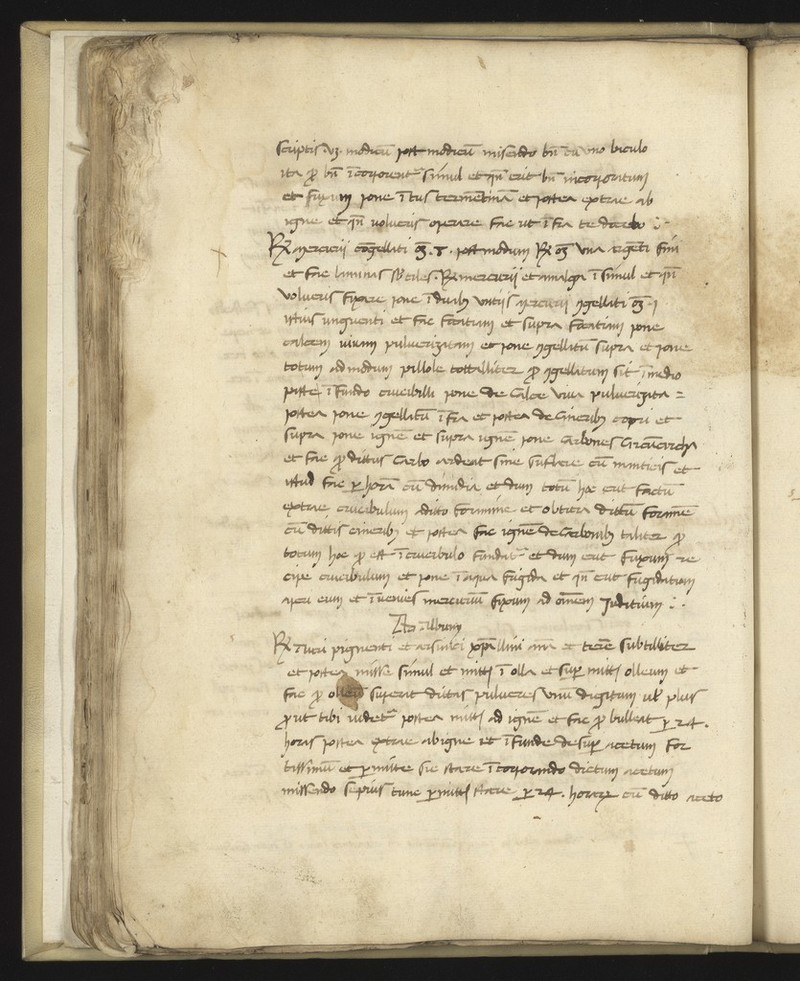 scriptis .vz. modicū post modicū miscendo bn̄ cū uno baculo
ita ꝙ bn̄ īcorporent~ simul et qn̄ erit bn̄ incorporatum
et fixum pone ītus termētinā et postea extrae ab
igne et qn̄ uolueris operare fac ut īfra te docebo :·
℞ mercurii cōgellati ℥. postmodum ℞ ℥ una argēti fini
et fac laminas sbtiles. ℞ mercurii et amalga īsimul et qn̄
volueris fixare pone ī duabꝫ untiis mercurii ꝯgellati ℥ j
istius unguenti et fac et supra pone
calcem uiuam pulverizatam et pone ꝯgellatū supra et pone
totum ad modum pillole tottalliter ꝙ ꝯgellatum sit ī medio
postea ī fundo crucibilli pone de calce viua pulverizata =
postea pone ꝯgellatū īfra et postea de cineribꝫ copri et
supra pone ignē et supra ignē pone carbones circūcircha
et fac ꝙ dittus carbo ardeat sine suflare cū manticis et
istud fac ꝑ horā cū dimidia et dum totū hoc erit factū
extrae crucibulum ditto et dittū
cū dittis cineribꝫ et postea fac ignē de carbonibꝫ taliter ꝙ
totum hoc ꝙ est ī crucibulo fundat~ et dum erit fuxum re
cipe crucibulum et pone ī aqua frigida et qn̄ erit frigidatum
aperi eum et īuenies mercurium fixum ad omēm juditium :·
Ad album
℞ auri pigmenti et arsinici xp̄allini ana et terre subtilliter
et postea misse simul et mitte ī olla et suꝑ mitte olleum et
fac ꝙ olleū superit dictas pulueres unū digitum ul̄ plus
ꝓut tibi uidet~ postea mitte ad ignē et fac ꝙ bulleat ꝑ 24.
horas postea extrae ab igne et īfunde desuꝑ acetum for
tissimū et ꝑmitte sic stare īcorporando dictum acetum
missendo sepius tunc ꝑmitte stare ꝑ 24. horas cū ditto aceto